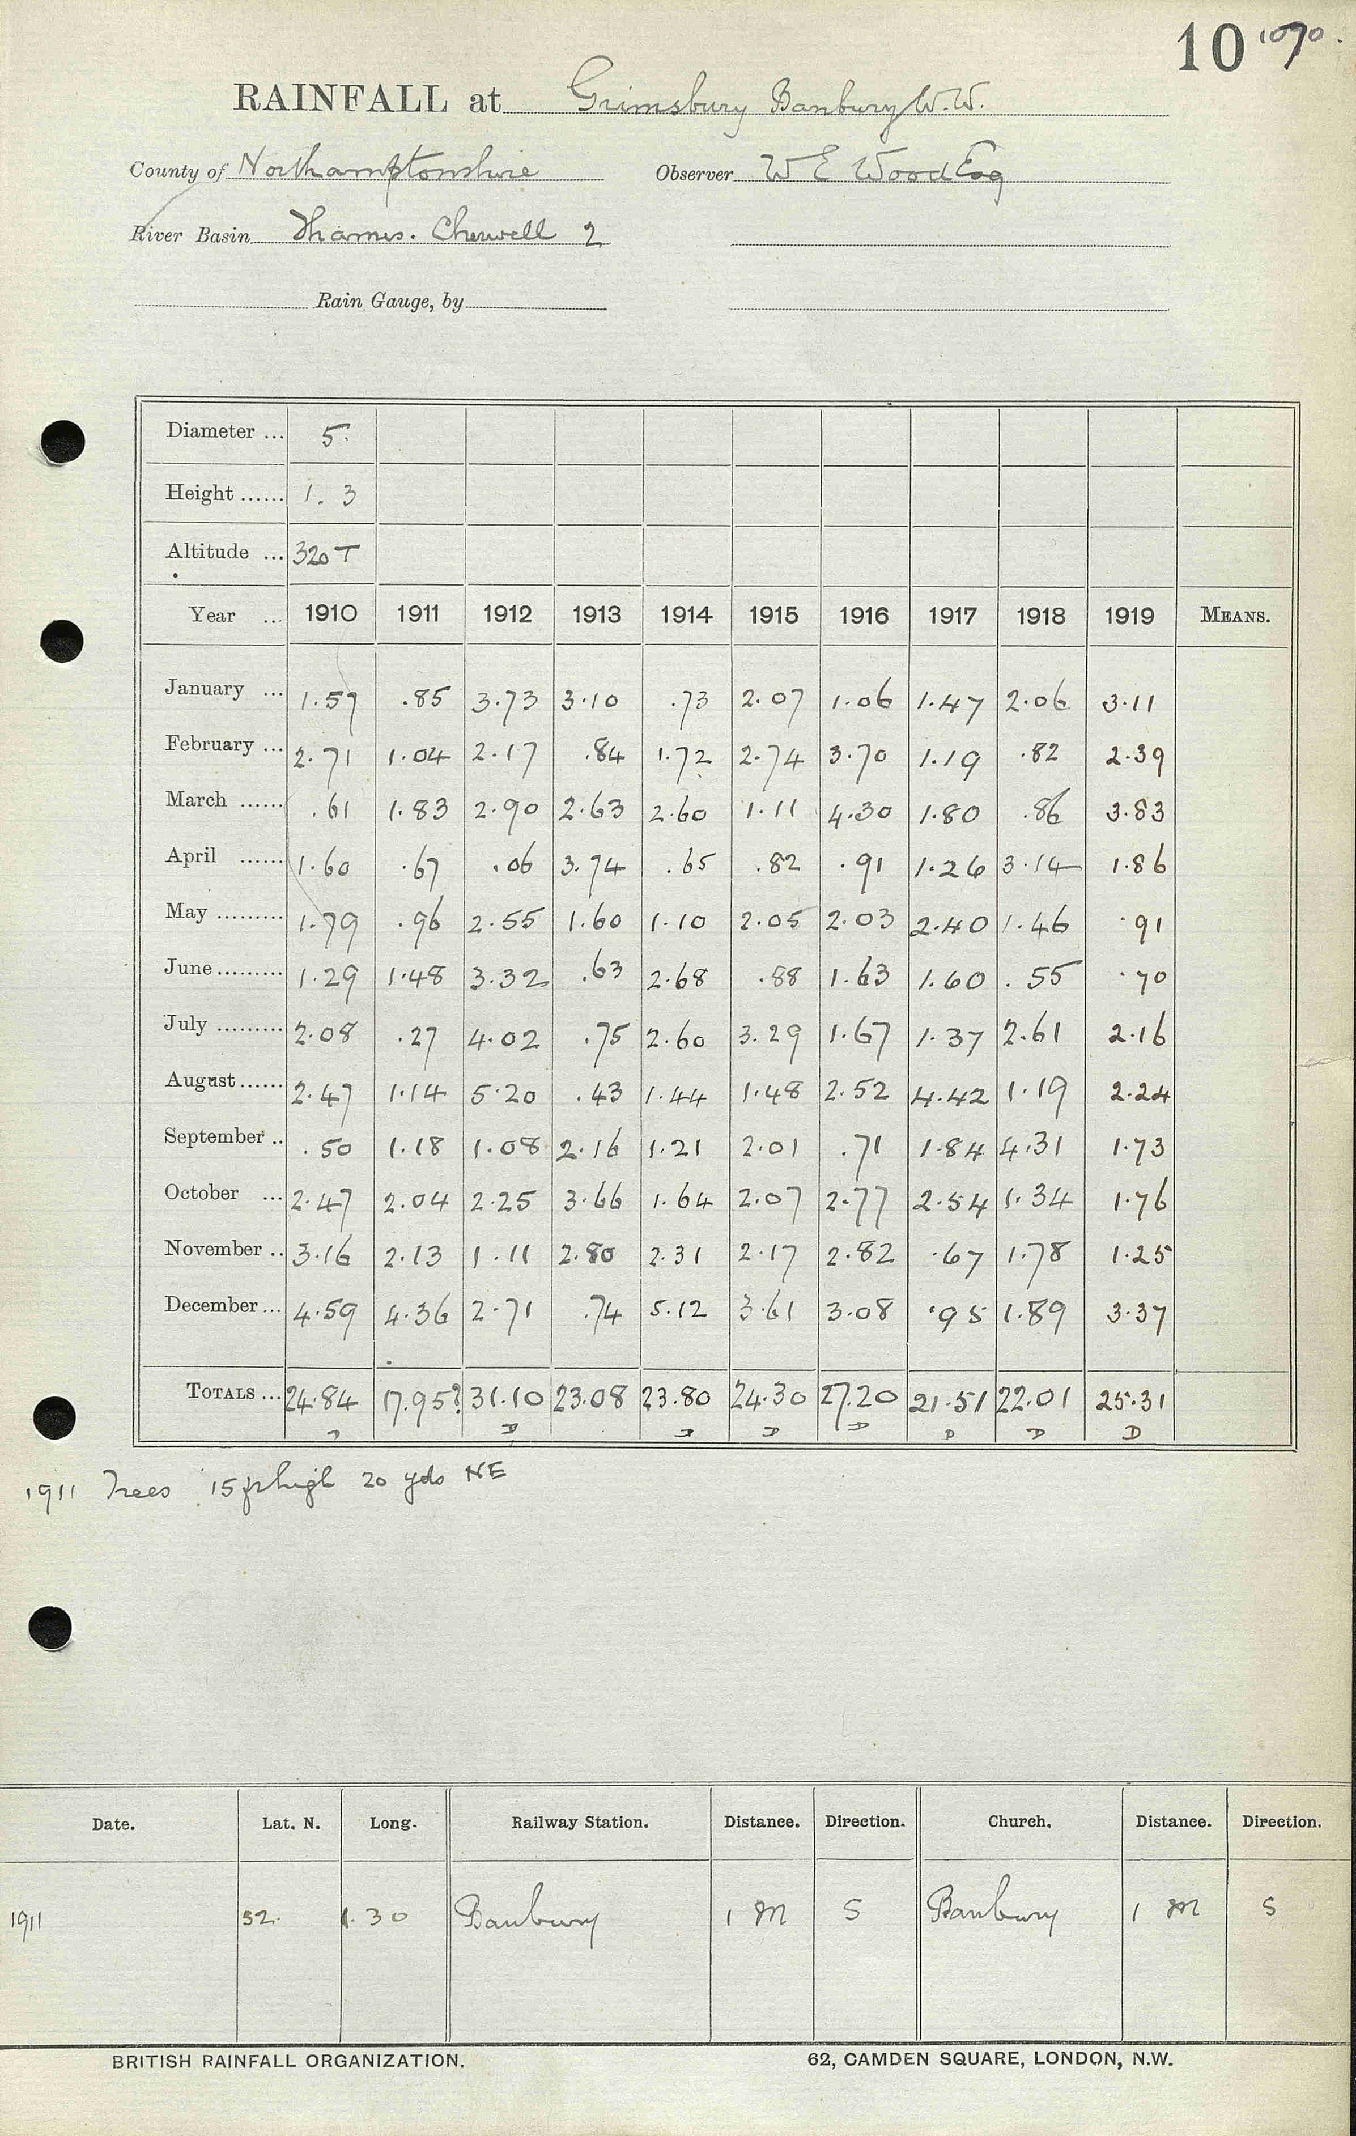 10 1070.
RAINFALL at Grimsbury Banbury W.W.
County of Northamptonshire Observer W E Wood Esq
River Basin Thames. Cherwell 2
Rain Gauge, by
Diameter ... 5.
Height ...... 1. 3
Altitude ... 320 T
Year ... 1910 1911 1912 1913 1914 1915 1916 1917 1918 1919 MEANS.
January ... 1.57 .85 3.73 3.10 .73 2.07 1.06 1.47 2.06 3.11
February ... 2.71 1.04 2.17 .84 1.72 2.74 3.70 1.19 .82 2.39
March ...... .61 1.83 2.90 2.63 2.60 1.11 4.30 1.80 .86 3.83
April ...... 1.60 .67 .06 3.74 .65 .82 .91 1.26 3.14 1.86
May ......... 1.79 .96 2.55 1.60 1.10 2.05 2.03 2.40 1.46 .91
June ......... 1.29 1.48 3.32 .63 2.68 .88 1.63 1.60 .55 .70
July ......... 2.08 .27 4.02 .75 2.60 3.29 1.67 1.37 2.61 2.16
August ...... 2.47 1.14 5.20 .43 1.44 1.48 2.52 4.42 1.19 2.24
September .. .50 1.18 1.08 2.16 1.21 2.01 .71 1.84 4.31 1.73
October ... 2.47 2.04 2.25 3.66 1.64 2.07 2.77 2.54 1.34 1.76
November .. 3.16 2.13 1.11 2.80 2.31 2.17 2.82 .67 1.78 1.25
December ... 4.59 4.36 2.71 .74 5.12 3.61 3.08 .95 1.89 3.37
TOTALS ... 24.84 17.95? 31.10 23.08 23.80 24.30 27.20 21.51 22.01 25.31
D D D D D D D D
1911 Trees 15 ft high 20 yds NE
Date. Lat. N. Long. Railway Station. Distance. Direction. Church. Distance. Direction.
1911 52. 1. 30 Banbury 1 M S Banbury 1 M S
BRITISH RAINFALL ORGANIZATION. 62, CAMDEN SQUARE, LONDON, N.W.